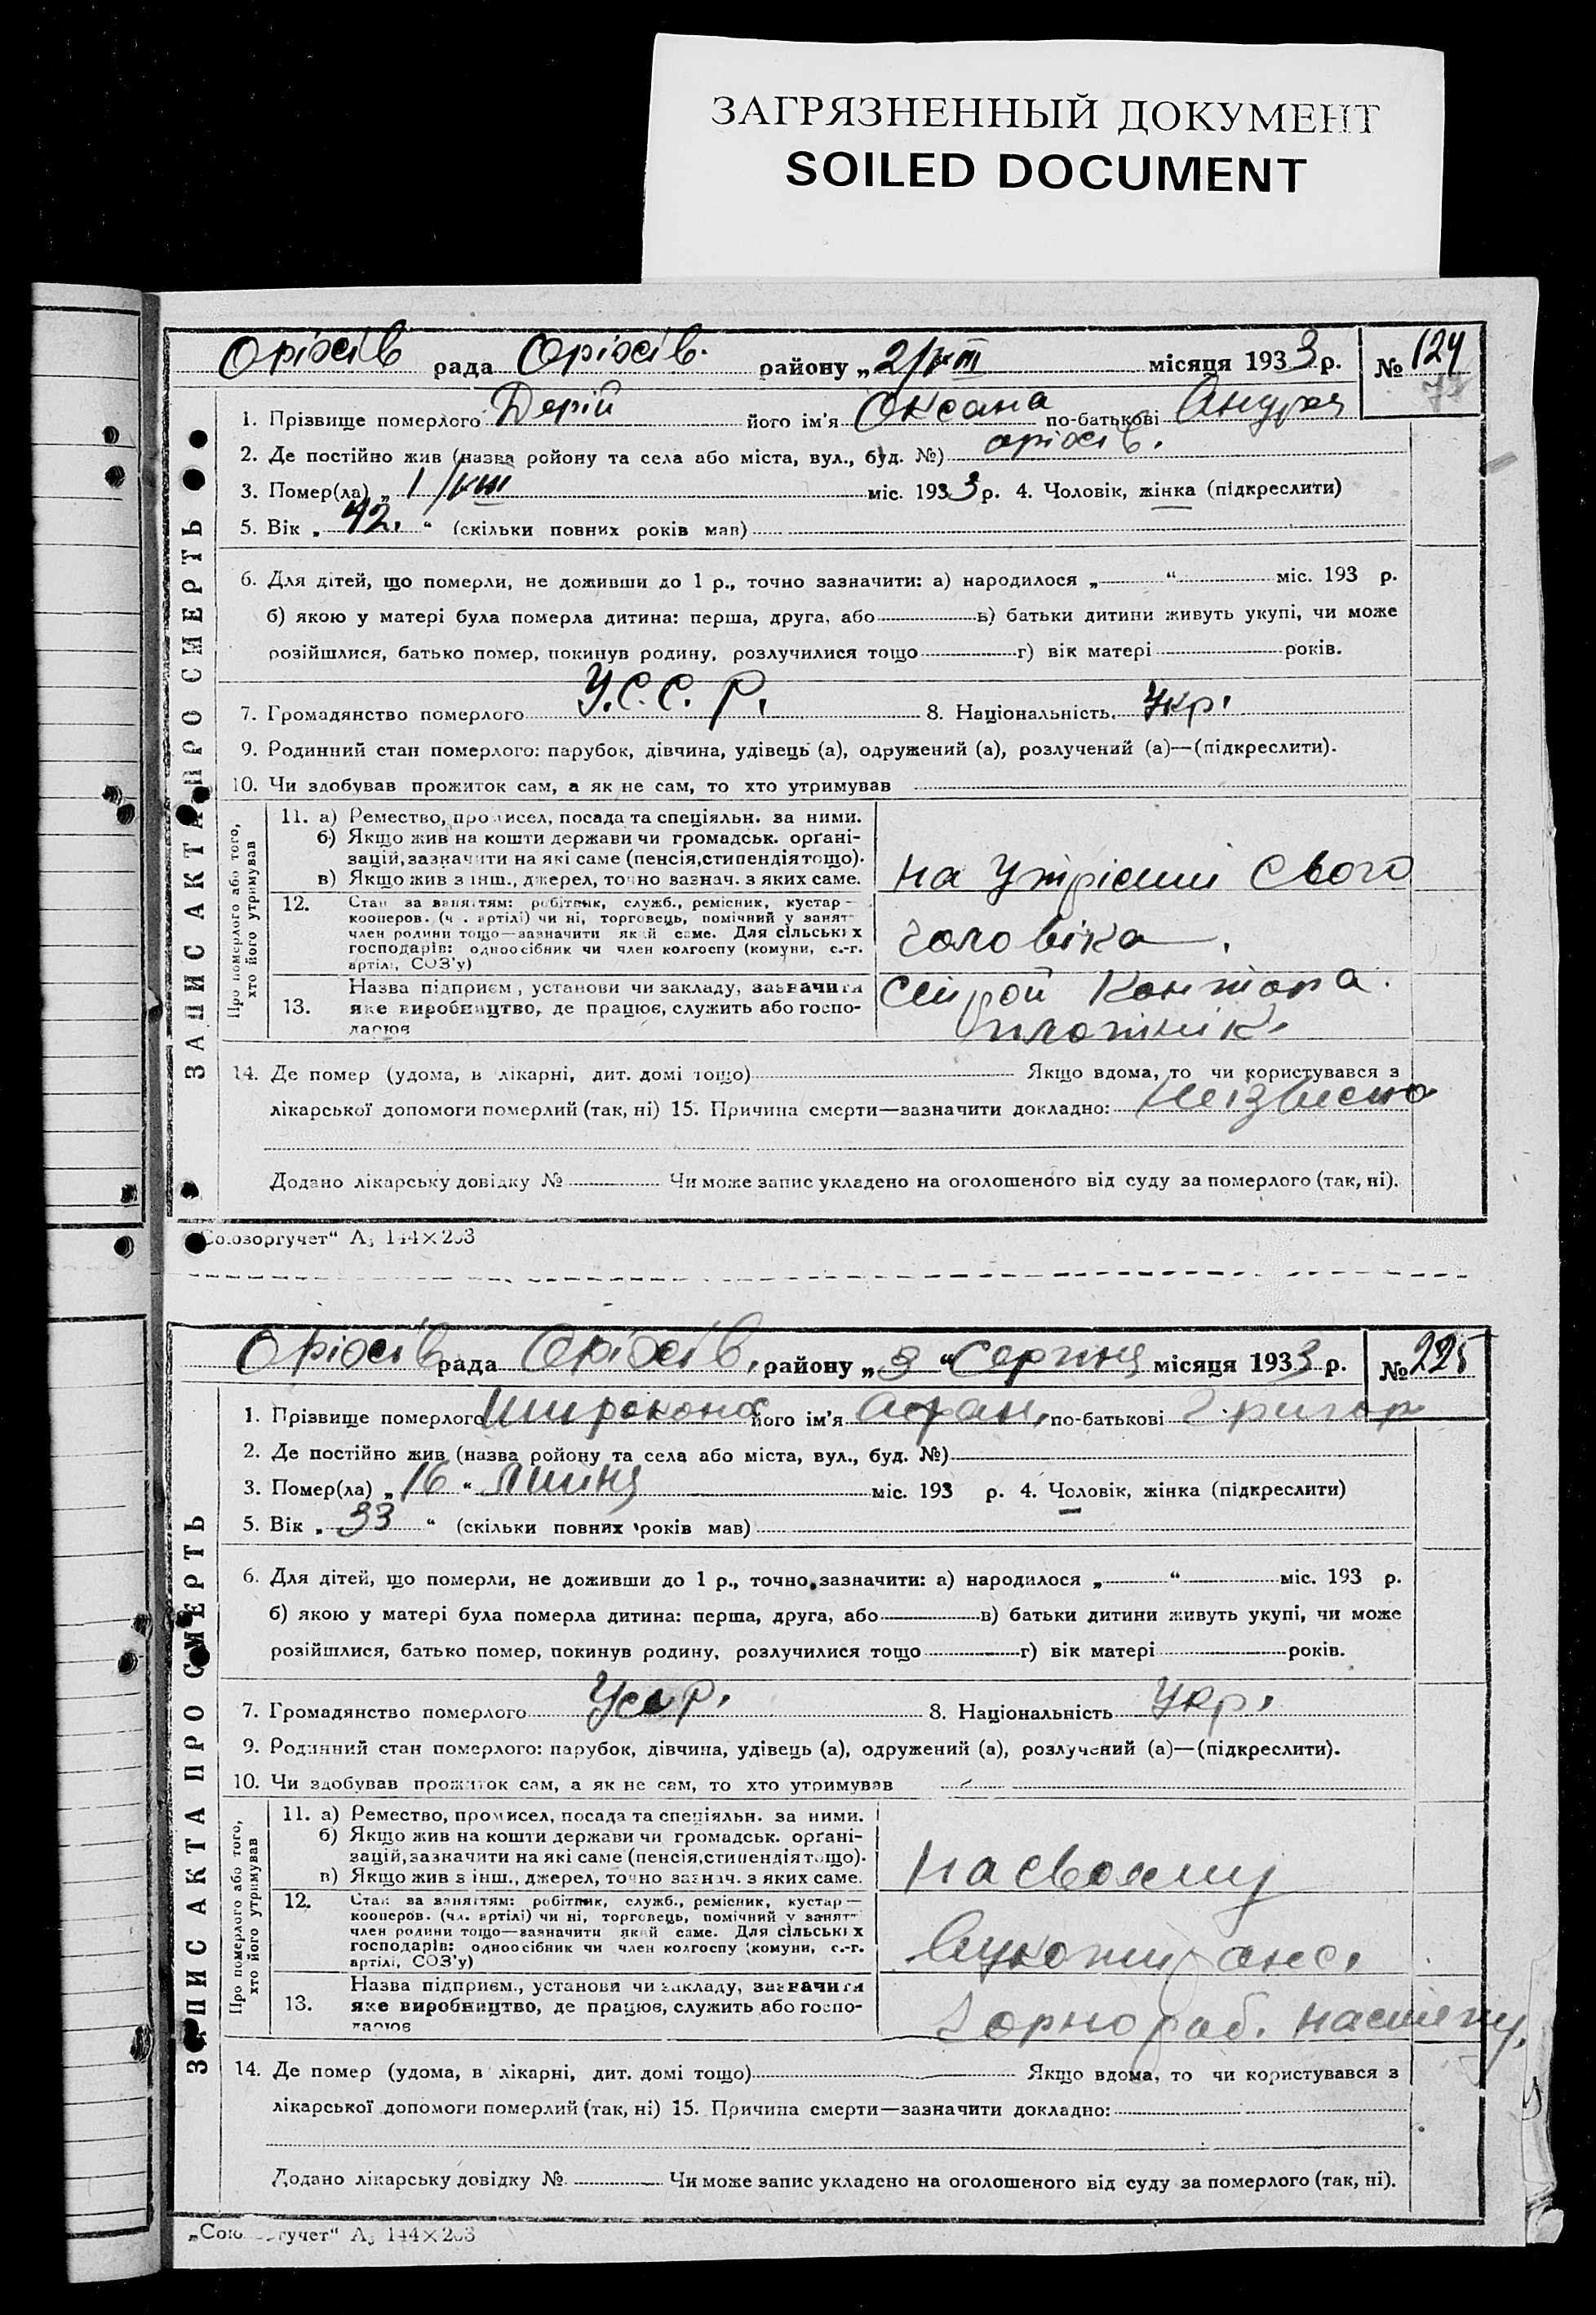 ЗАГРЯЗНЕННЫЙ ДОКУМЕНТ
SOILED DOCUMENT
Оріхів рада Оріхів. району „2/VIII місяця 1933 р. № 124
1. Прізвище померлого Дерій його ім'я Оксана по-батькові Андрея
2. Де постійно жив (назва ройону та села або міста, вул., буд. №) оріхів.
3. Помер(ла) „ 1/VIII міс. 1933 р. 4. Чоловік, жінка (підкреслити)
5. Вік „ 42. “ (скільки повних років мав)
6. Для дітей, що померли, не доживши до 1 р., точно зазначити: а) народилося „ “ міс. 193 р.
б) якою у матері була померла дитина: перша, друга, або в) батьки дитини живуть укупі, чи може
розійшлися, батько помер, покинув родину, розлучилися тощо г) вік матері років.
7. Громадянство померлого У.С.С.Р. 8. Національність. Укр.
9. Родинний стан померлого: парубок, дівчина, удівець (а), одружений (а), розлучений (а)—(підкреслити).
10. Чи здобував прожиток сам, а як не сам, то хто утримував
ЗАПИС АКТА ПРО СМЕРТЬ
Про померлого або того,
хто його утримував
11. а) Ремество, промисел, посада та спеціяльн. за ними.
б) Якщо жив на кошти держави чи громадськ. органі-
зацій, зазначити на які саме (пенсія, стипендія тощо).
в) Якщо жив з інш., джерел, точно зазнач. з яких саме.
на утріємі свого
12. Стан за заняттям: робітник, служб., ремісник, кустар—
кооперов. (чл. артілі) чи ні, торговець, помічний у занят—
член родини тощо—зазначити який саме. Для сільських
господарів: одноосібник чи член колгоспу (комуни, с.-г.
артілі, СОЗ'у)
чоловіка.
13. Назва підприєм., установи чи закладу, зазначити
яке виробництво, де працює, служить або госпо-
дарює
Строй Контора.
плотнік.
14. Де помер (удома, в лікарні, дит. домі тощо) Якщо вдома, то чи користувався з
лікарської допомоги померлий (так, ні) 15. Причина смерти—зазначити докладно: Неізвисно
Додано лікарську довідку № Чи може запис укладено на оголошеного від суду за померлого (так, ні).
„Союзоргучет“ А₅ 144×203
Оріхів рада Оріхів. району „ 3 “ Серпня місяця 1933 р. № 225
1. Прізвище померлого Широконос його ім'я Афан. по-батькові Григор
2. Де постійно жив (назва ройону та села або міста, вул., буд. №)
3. Помер(ла) „ 16 “ липня міс. 193 р. 4. Чоловік, жінка (підкреслити)
5. Вік „ 33 “ (скільки повних років мав)
6. Для дітей, що померли, не доживши до 1 р., точно зазначити: а) народилося „ “ міс. 193 р.
б) якою у матері була померла дитина: перша, друга, або в) батьки дитини живуть укупі, чи може
розійшлися, батько помер, покинув родину, розлучилися тощо г) вік матері років.
7. Громадянство померлого Усср. 8. Національність Укр.
9. Родинний стан померлого: парубок, дівчина, удівець (а), одружений (а), розлучений (а)—(підкреслити).
10. Чи здобував прожиток сам, а як не сам, то хто утримував
ЗАПИС АКТА ПРО СМЕРТЬ
Про померлого або того,
хто його утримував
11. а) Ремество, промисел, посада та спеціяльн. за ними.
б) Якщо жив на кошти держави чи громадськ. органі-
зацій, зазначити на які саме (пенсія, стипендія тощо).
в) Якщо жив з інш., джерел, точно зазнач. з яких саме.
на своєму
12. Стан за заняттям: робітник, служб., ремісник, кустар—
кооперов. (чл. артілі) чи ні, торговець, помічний у занят—
член родини тощо—зазначити який саме. Для сільських
господарів: одноосібник чи член колгоспу (комуни, с.-г.
артілі, СОЗ'у)
13. Назва підприєм., установи чи закладу, зазначити
яке виробництво, де працює, служить або госпо-
дарює
Чорнораб.
14. Де помер (удома, в лікарні, дит. домі тощо) Якщо вдома, то чи користувався з
лікарської допомоги померлий (так, ні) 15. Причина смерти—зазначити докладно:
Додано лікарську довідку № Чи може запис укладено на оголошеного від суду за померлого (так, ні).
„Союзоргучет“ А₅ 144×203